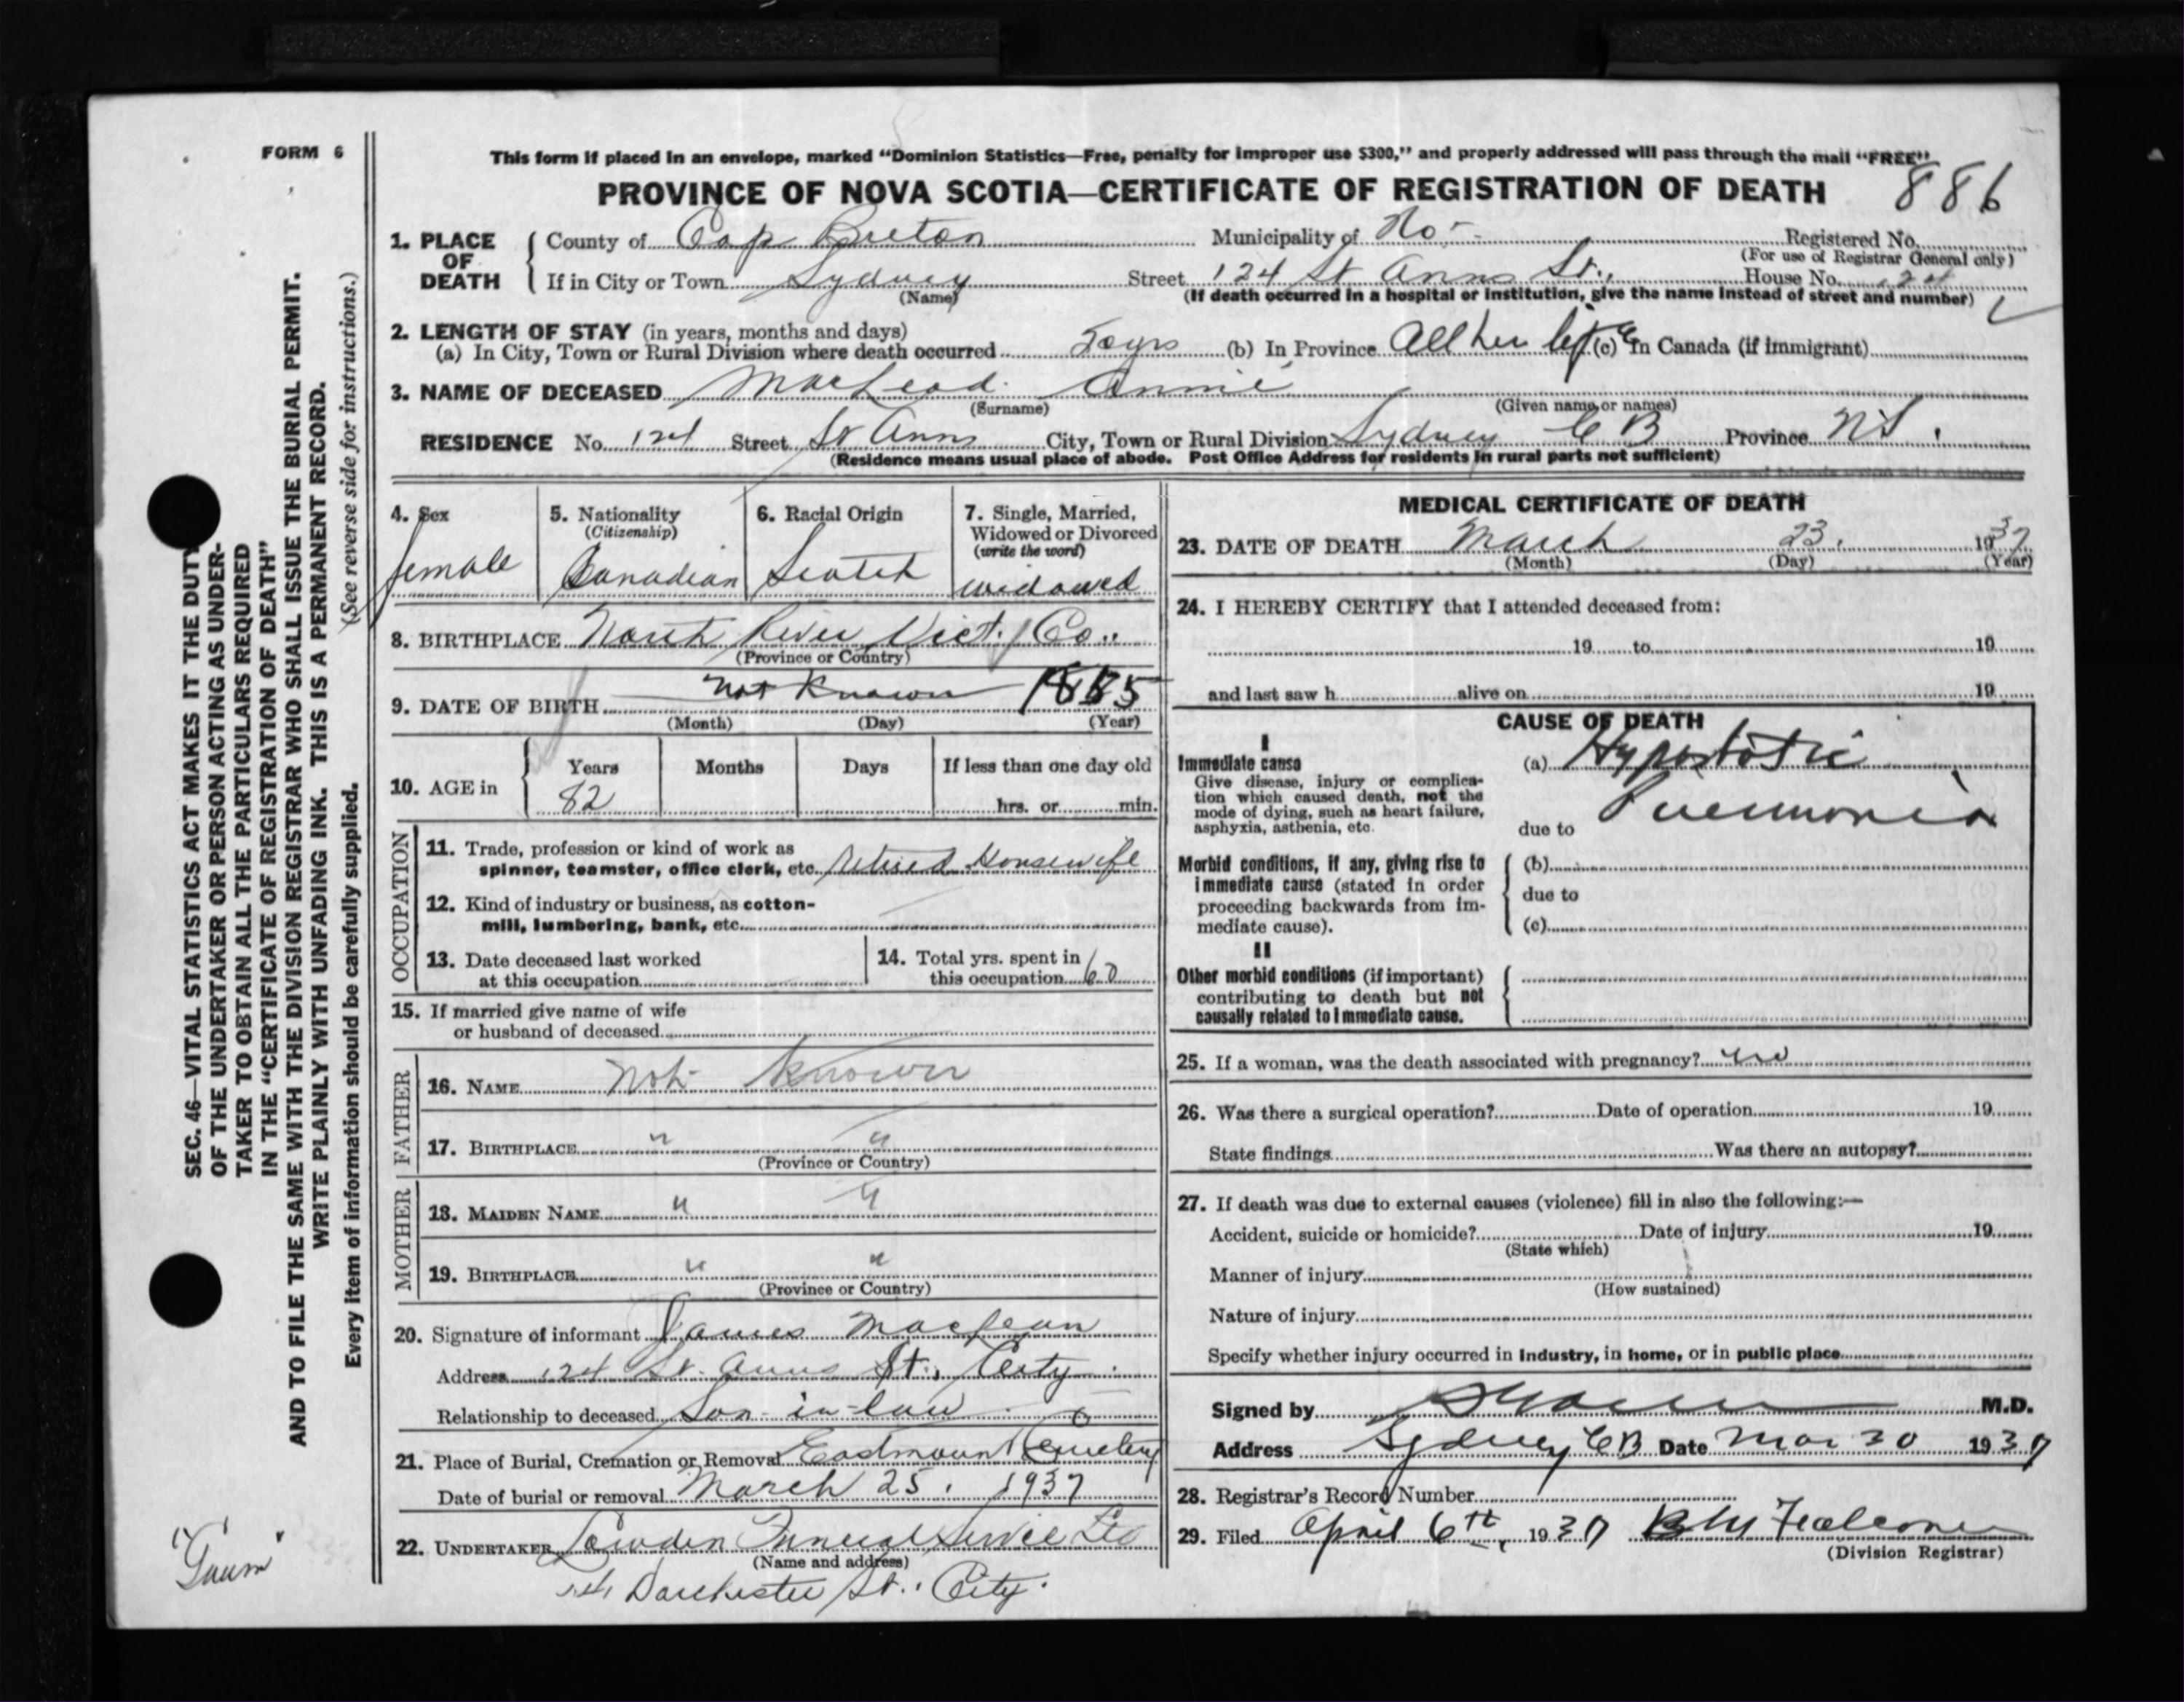 FORM 6
This form if placed in an envelope, marked "Dominion Statistics—Free, penalty for improper use $300," and properly addressed will pass through the mail "FREE"
PROVINCE OF NOVA SCOTIA—CERTIFICATE OF REGISTRATION OF DEATH 886
1. PLACE OF DEATH
County of Cap Breton Municipality of No. Registered No.
(For use of Registrar General only)
If in City or Town Sydney Street 124 St Anns St., House No. 124
(Name) (If death occurred in a hospital or institution, give the name instead of street and number)
2. LENGTH OF STAY (in years, months and days)
(a) In City, Town or Rural Division where death occurred yrs (b) In Province All her life (c) In Canada (if immigrant)
3. NAME OF DECEASED MacLeod. Annie
(Surname) (Given name or names)
RESIDENCE No. 124 Street St Anns City, Town or Rural Division Sydney C B Province N.S.
(Residence means usual place of abode. Post Office Address for residents in rural parts not sufficient)
4. Sex female
5. Nationality (Citizenship) Canadian
6. Racial Origin Scotch
7. Single, Married, Widowed or Divorced (write the word) widowed
8. BIRTHPLACE North River Vict. Co..
(Province or Country)
9. DATE OF BIRTH not known 1885
(Month) (Day) (Year)
10. AGE in Years Months Days If less than one day old
82 hrs. or min.
OCCUPATION
11. Trade, profession or kind of work as
spinner, teamster, office clerk, etc. retired Housewife
12. Kind of industry or business, as cotton-
mill, lumbering, bank, etc.
13. Date deceased last worked
at this occupation
14. Total yrs. spent in
this occupation 60
15. If married give name of wife
or husband of deceased
FATHER
16. NAME Not known
17. BIRTHPLACE " "
(Province or Country)
MOTHER
18. MAIDEN NAME " "
19. BIRTHPLACE " "
(Province or Country)
20. Signature of informant James MacLean
Address 124 St. Anns St., City
Relationship to deceased Son-in-law
21. Place of Burial, Cremation or Removal Eastmount Cemetery
Date of burial or removal March 25. 1937
22. UNDERTAKER Lowden Funeral Service Ltd
(Name and address)
Dorchester St., City.
MEDICAL CERTIFICATE OF DEATH
23. DATE OF DEATH March 23. 1937
(Month) (Day) (Year)
24. I HEREBY CERTIFY that I attended deceased from:
19 to 19
and last saw h alive on 19
CAUSE OF DEATH
I
Immediate cause
Give disease, injury or complica-
tion which caused death, not the
mode of dying, such as heart failure,
asphyxia, asthenia, etc.
(a) Hypostatic
Pneumonia
due to
Morbid conditions, if any, giving rise to
immediate cause (stated in order
proceeding backwards from im-
mediate cause).
(b)
due to
(c)
II
Other morbid conditions (if important)
contributing to death but not
causally related to immediate cause.
25. If a woman, was the death associated with pregnancy? no
26. Was there a surgical operation? Date of operation 19
State findings Was there an autopsy?
27. If death was due to external causes (violence) fill in also the following:—
Accident, suicide or homicide? Date of injury 19
(State which)
Manner of injury
(How sustained)
Nature of injury
Specify whether injury occurred in industry, in home, or in public place
Signed by M.D.
Address Sydney CB Date Mar 30 1937
28. Registrar's Record Number
29. Filed April 6th, 1937
(Division Registrar)
SEC. 46—VITAL STATISTICS ACT MAKES IT THE DUTY
OF THE UNDERTAKER OR PERSON ACTING AS UNDER-
TAKER TO OBTAIN ALL THE PARTICULARS REQUIRED
IN THE "CERTIFICATE OF REGISTRATION OF DEATH"
AND TO FILE THE SAME WITH THE DIVISION REGISTRAR WHO SHALL ISSUE THE BURIAL PERMIT.
WRITE PLAINLY WITH UNFADING INK. THIS IS A PERMANENT RECORD.
Every item of information should be carefully supplied. (See reverse side for instructions.)